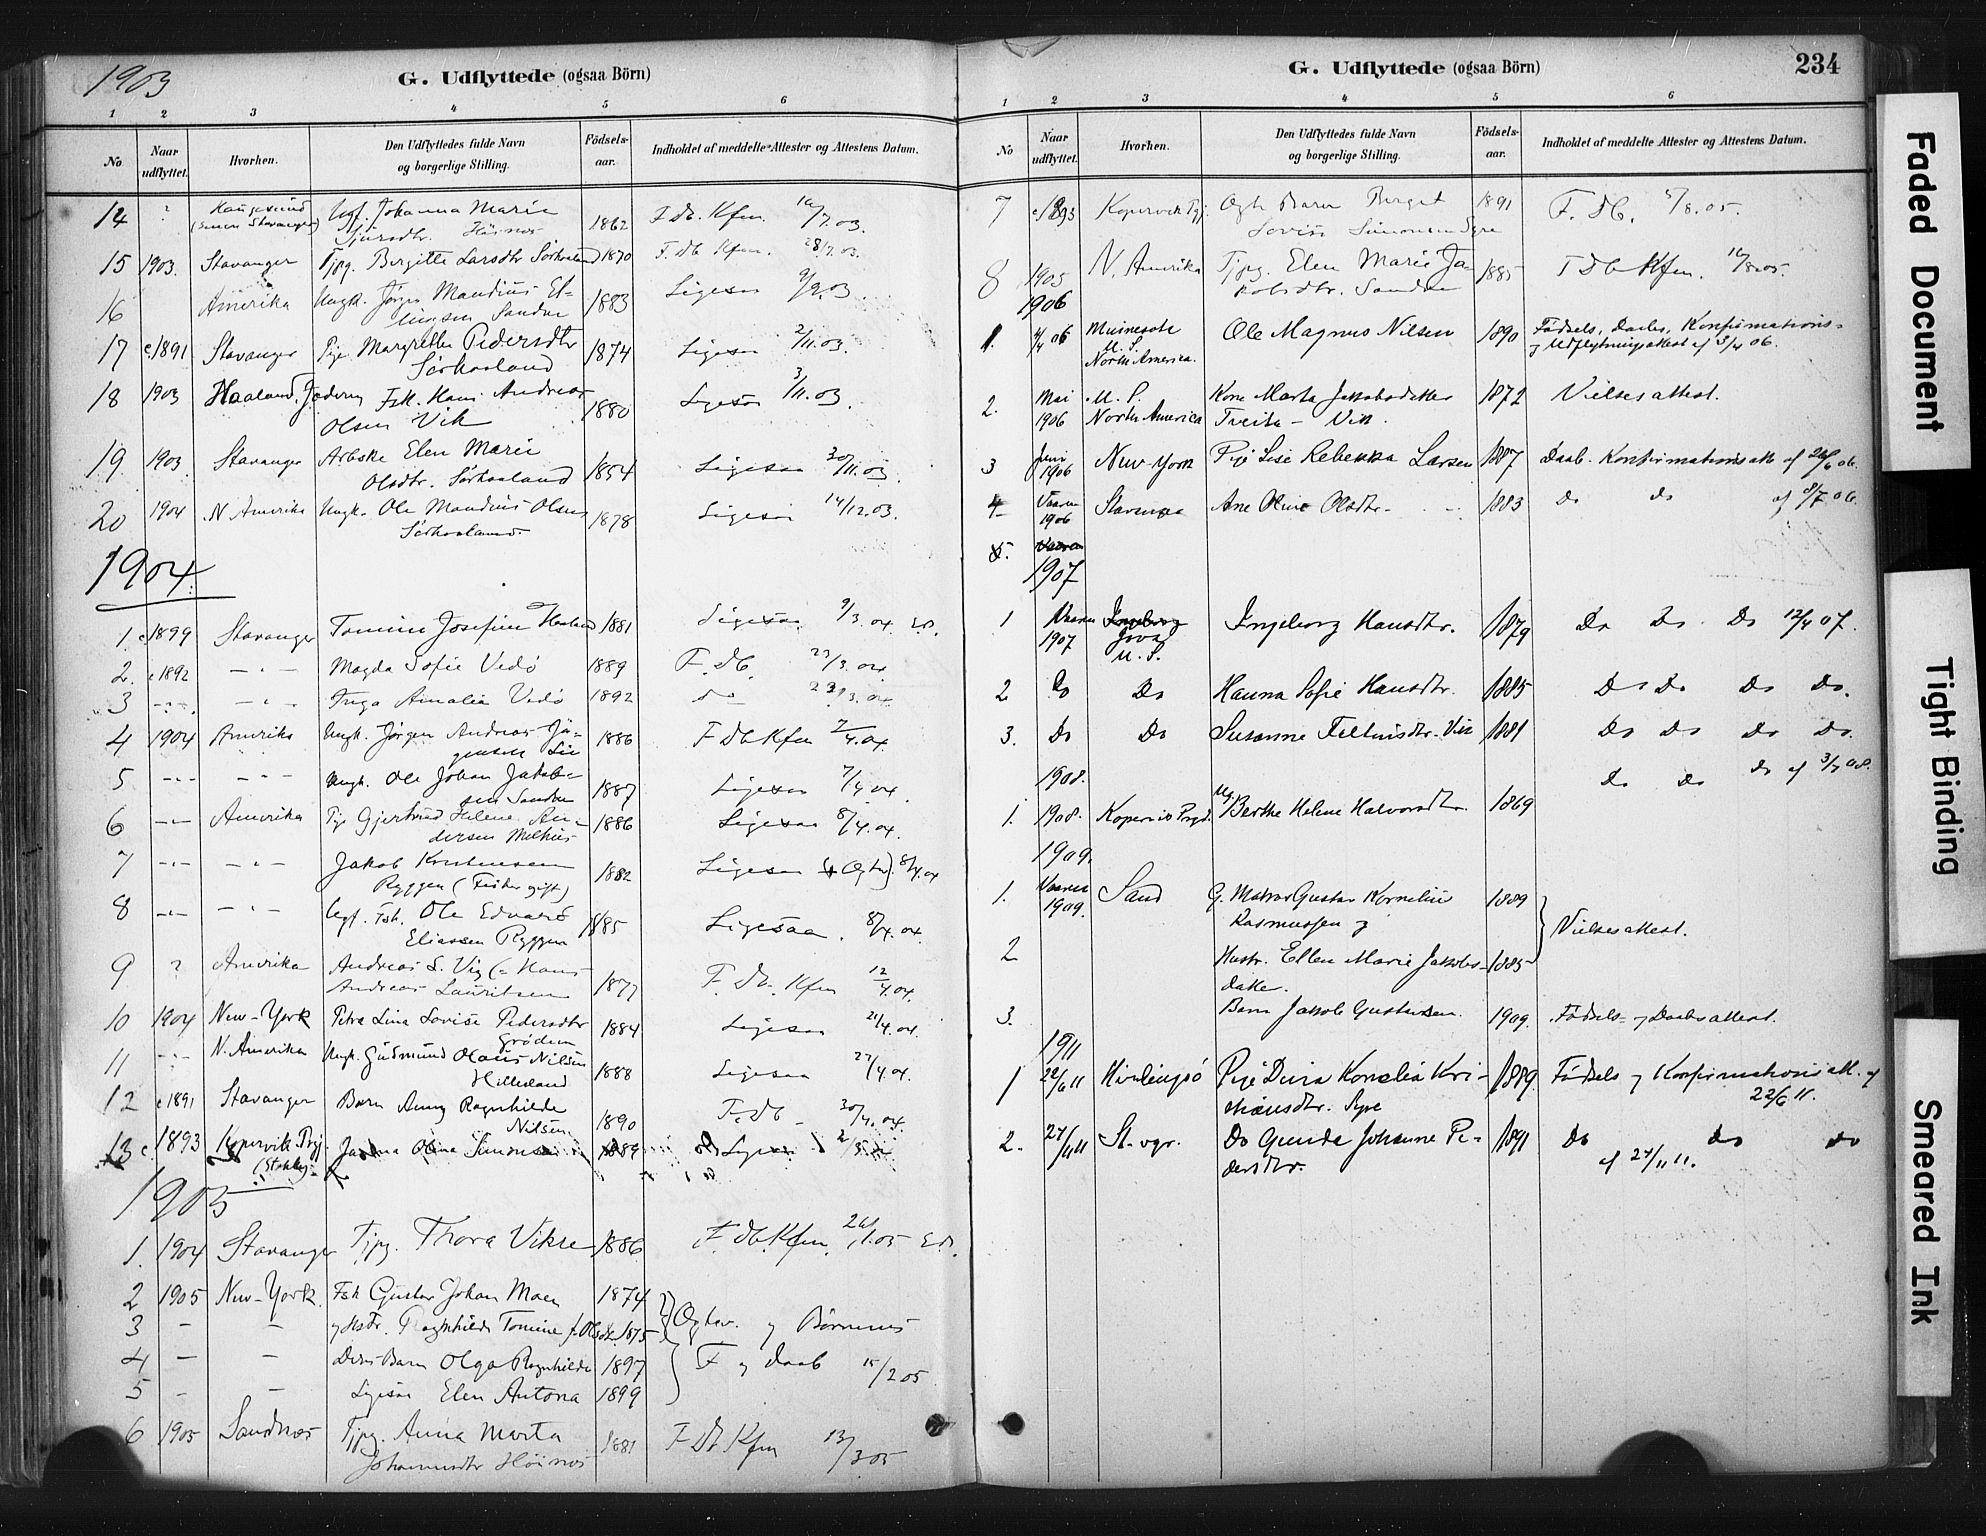 1903
G. Udflyttede (ogsaa Börn)
1 2 3 4 5 6
No
Naar udflyttet.
Hvorhen.
Den Udflyttedes fulde Navn
og borgerlige Stilling.
Födsels-
aar.
Indholdet af meddelte Attester og Attestens Datum.
14 ? Haugesund Ugf. Johanna Marie 1862 F. Db. Kfm. 16/7.03.
15 1903. Stavanger Tjpg. Bergitte Larsdtr Sörhaaland 1870 F. Db Kfm. 28/7.03.
16 Amerika Ungk. Jörgen Mandius El- 1883 Ligesaa 9/9.03.
lingsen Sandve
17 c/1891 Stavanger Pige Margrethe Pedersdtr 1874 Ligesaa 2/11.03.
Sörhaaland
18 1903 Haaland, Jæderen Fsk. Hans Andreas 1880 Ligesaa 3/11.03.
Olsen Vik
19. 1903. Stavanger Arbske Elen Marie 1854 Ligesaa 30/11.03.
Olsdtr. Sörhaaland
20 1904 N. Amerika Ungk. Ole Mandius Olsen 1878 Ligesaa 14/12.03.
Sörhaaland.
1904
1. c1899 Stavanger Tomine Josefine Haaland 1881 Ligesaa 9/3.04
2. c1892 — " — Magda Sofie Vedö 1889 F. Db. 23/3.04
3 — " — — " — Inga Amalia Vedö 1892 do 23/3.04
4 1904 Amerika Ungk. Jörgen Andreas Jö- 1886 F Db Kfm 7/4.04
5 — " — — " — Ungk. Ole Johan Jakob- 1887 Ligesaa 7/4 04.
sen Sandve
6 — " — Amerika Pige Gjertrud Helene An- 1886 Ligesaa 8/4.04.
dersen Melhus
7 — " — — " — Jakob Kristensen 1882 Ligesaa 8/4.04
Ryggen (Fisker gift)
8 — " — — " — Ugf. Fsk. Ole Edvard 1885 Ligesaa. 8/4.04.
Eliassen Ryggen
9 ? Amerika Andreas L. Vig (= Hans 1877 F. Db. Kfm 12/4.04.
Andreas Lauritsen
10 1904 New-York Petra Lina Lovise Pedersdtr 1884 Ligesaa 21/4.04.
Grödem
11 — " — N. Amerika Ungk. Gudmund Olaus Nilsen 1888 Ligesaa 27/4.04.
Hillesland
12 c1891 Stavanger Barn Anny Ragnhilde 1890 F. Db 30/4.04.
Nilsen
13 c. 1893 Kopervik Prgj. Olina Simonsen 1889 Ligesaa
1905
1. 1904 Stavanger Tjpg. Thora Vikse 1886 F. Db. Kfm. 26/1.05
2 1905 New-York. Fsk Gustav Johan Moen 1874
3 — — g Hstr. Ragnhilde Tomine f. Olsdtr. 1875 Ogtev. g Börnenes
4 — — Deres Barn Olga Ragnhilde 1897 F g Daab 15/2 05
5 — — Ligesaa Elen Antona 1899
6 1905 Sandnes Tjpg. Anna Marta 1881 F Db Kfm 13/3 05
Johannesdtr Höines
G. Udflyttede (ogsaa Börn)
234
1 2 3 4 5 6
No
Naar
udflyttet.
Hvorhen.
Den Udflyttedes fulde Navn
og borgerlige Stilling.
Födsels-
aar.
Indholdet af meddelte Attester og Attestens Datum.
7 c/1893 Kopervik Pgj. Ogte Barn Berget 1891 F. Db. 5/8.05.
Lovise Simonsen Syre
8 1905 N. Amerika Tjpg. Elen Marie Ja- 1885 F Db Kfm. 16/8.05.
kobsdtr. Sandve
1906
1. 4/4 06 Minnesota Ole Magnus Nilsen 1890 Fødsels, Daabs, Konfirmations-
U. S. g Udflytningsattest af 3/4 06.
North America.
2. Mai U. S. Kone Marta Jakobsdatter 1872 Vielsesattest.
1906 North America Tveita - Vik.
3 Juni New-York Pige Lise Rebekka Larsen 1887 Daab. Konfirmationsatt af 26/6 06.
1906
4 Vaaren Stavanger Ane Oline Olsdtr. 1883 Do Do af 8/7 06.
1906
5. Vaaren
1907
1 Vaaren Ingeborg Ingeborg Hansdtr. 1879 Do Do. Do 12/4 07.
1907 Iova
U. S.
2 Do Do Hanna Sofie Hansdtr. 1885 Do Do Do Do.
3. Do Do Susanne Feltinsdtr. Vik 1881 Do Do Do Do.
1908. Do Do Do af 3/7 08.
1. 1908. Kopervik Prgd. Ug/ Berthe Helene Halvorsdtr. 1869
1909.
1. Vaaren Sand G. Matros Gustav Kornelius 1889
1909. Rasmussen g Vielsesattest.
2 Hustr. Ellen Marie Jakobs- 1885
datter.
3. Barn Jakob Gustavsen. 1909. Fødsels- g Daabsattest.
1911
1 22/6 11 Kinlingsö Pige Dina Kornelia Kri- 1889 Fødsels g Konfirmationsatt. af
stiansdtr. Syre 22/6 11.
2. 27/11 11 St. vgr. Do Gunda Johanne Pe- 1891 Do Do Do
dersdtr. af 27/11 11.
Faded Document
Tight Binding
Smeared Ink